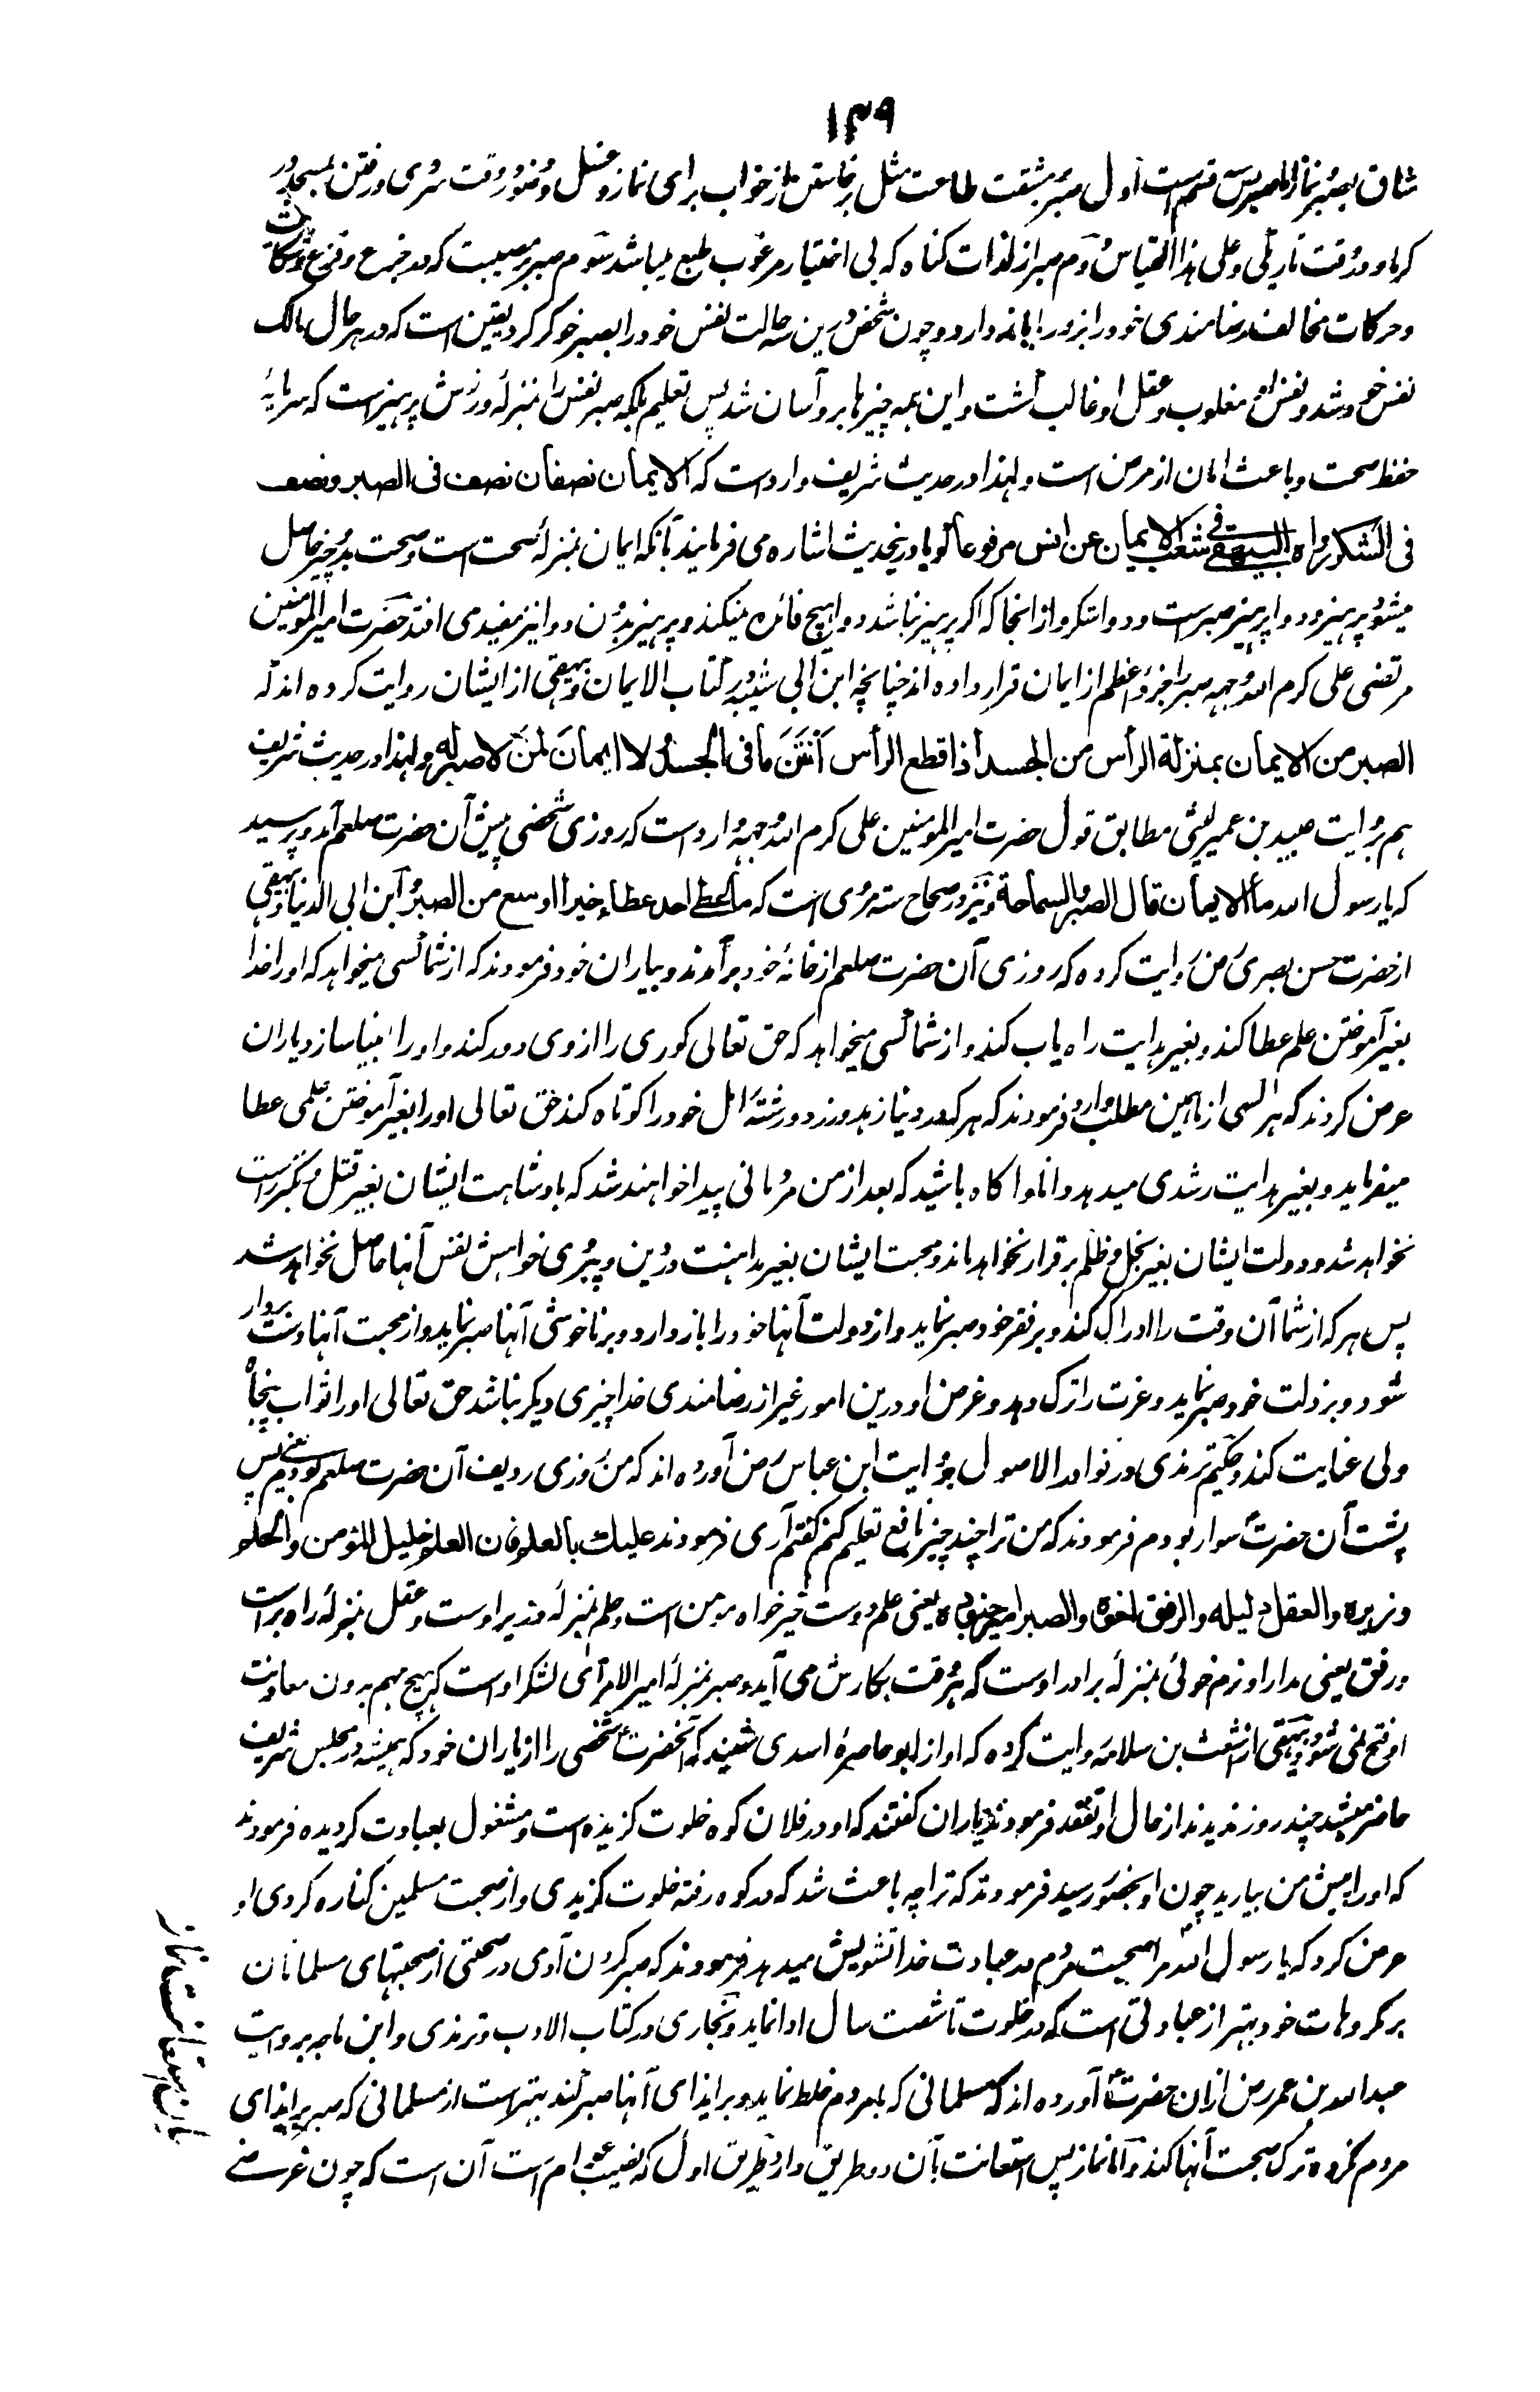 ۱۴۹
شاق بصبر و نماز اما صبر پس سه قسم است اول صبر بر مشقت طاعت مثل برخاستن از خواب برای نماز و غسل و وضو در وقت سردی و رفتن بمسجد در
گرما و در وقت تاریکی و علی هذا القیاس دوم صبر از لذات گناه که بی اختیار مرغوب طبع میباشد سوم صبر بر مصیبت که در جزع و فزع و شکایت
و حرکات مخالف رضامندی خود را بزور بازدارد و چون شخص درین سه حالت نفس خود را بصبر خوگر کرد یقین است که در هر حال مالک
نفس خود شد و نفس او مغلوب و عقل او غالب گشت و این همه چیزها برو آسان شد پس تعلیم ملکه صبر نفس را بمنزلهٔ ورزش پرهیز است که سرمایهٔ
حفظ صحت و باعث امان از مرض است و لهذا در حدیث شریف وارد است که الایمان نصفان نصف فی الصبر و نصف
فی الشکر رواه البیهقی فی شعب الایمان عن انس مرفوعا گویا درینحدیث اشاره می فرمایند بآنکه ایمان بمنزلهٔ صحت است و صحت بدو چیز حاصل
میشود پرهیز و دوا پرهیز صبر است و دوا شکر و از انجا که اگر پرهیز نباشد دوا هیچ فائده نمیکند و پرهیز بدون دوا نیز مفید می افتد حضرت امیر المومنین
مرتضی علی کرم الله وجهه صبر را جزو اعظم از ایمان قرار داده اند چنانچه ابن ابی شیبه در کتاب الایمان و بیهقی از ایشان روایت کرده اند که
الصبر من الایمان بمنزلة الرأس من الجسد اذا قطع الرأس انتن ما فی الجسد و لا ایمان لمن لا صبر له و لهذا در حدیث شریف
هم بروایت عبید بن عمیر لیثی مطابق قول حضرت امیر المومنین علی کرم الله وجهه وارد است که روزی شخصی پیش آن حضرت صلعم آمد و پرسید
که یا رسول الله ما الایمان قال الصبر و السماحة و نیز در صحاح سته مروی است که ما اعطی احد عطاء خیرا اوسع من الصبر و ابن ابی الدنیا و بیهقی
از حضرت حسن بصری رض روایت کرده که روزی آن حضرت صلعم از خانهٔ خود برآمدند و بیاران خود فرمودند که از شما کسی میخواهد که او را خدا
بغیر آموختن علم عطا کند و بغیر هدایت راه یاب کند و از شما کسی میخواهد که حق تعالی کوری را از وی دور کند و او را بینا سازد یاران
عرض کردند که هر کسی از ما همین مطلب دارد فرمودند که هر که در دنیا زهد ورزد و رشتهٔ امل خود را کوتاه کند حق تعالی او را بغیر آموختن علمی عطا
میفرماید و بغیر هدایت رشدی میدهد و انا و آگاه باشید که بعد از من مردمانی پیدا خواهند شد که بادشاهت ایشان بغیر قتل و تکبر راست
نخواهد شد و دولت ایشان بغیر بخل و ظلم برقرار نخواهد ماند و محبت ایشان بغیر مداهنت در دین و پیروی خواهش نفس آنها حاصل نخواهد شد
پس هر که از شما آن وقت را ادراک کند و بر فقر خود صبر نماید و از دولت آنها خود را باز دارد و بر ناخوشی آنها صبر نماید و از محبت آنها دست بردار
شود و بر ذلت خود صبر نماید و عزت را ترک دهد و غرض او درین امور غیر از رضامندی خدا چیزی دیگر نباشد حق تعالی او را ثواب پنجاه
ولی عنایت کند و حکیم ترمذی در نوادر الاصول بروایت ابن عباس رض آورده اند که من روزی ردیف آن حضرت صلعم بودم یعنی پس
پشت آن حضرت سوار بودم فرمودند که من ترا چند چیز نافع تعلیم کنم گفتم آری فرمودند علیک بالعلم فان العلم خلیل المومن و الحلم
وزیره و العقل دلیله و الرفق اخوه و الصبر امیر جنوده یعنی علم دوست خیرخواه مومن است و حلم بمنزلهٔ وزیر اوست و عقل بمنزلهٔ راه بر است
و رفق یعنی مدارا و نرم خوئی بمنزلهٔ برادر اوست که هر وقت بکارش می آید و صبر بمنزلهٔ امیر الامرای لشکر اوست که هیچ مهم بدون معاونت
او فتح نمی شود و بیهقی از اشعث بن سلامه روایت کرده که او از ابو حاضره اسدی شنید که آنحضرت شخصی را از یاران خود که همیشه در مجلس شریف
حاضر میشد چند روز ندیدند از حال او تفقد فرمودند یاران گفتند که او در فلان کوه خلوت گزیده است و مشغول بعبادت گردیده فرمودند
که او را پیش من بیارید چون او بحضور رسید فرمودند که ترا چه باعث شد که در کوه رفته خلوت گزیدی و از صحبت مسلمین کناره کردی او
عرض کرد که یا رسول الله مرا صحبت مردم در عبادت خدا تشویش میدهد فرمودند که صبر کردن آدمی در صحبتی از صحبتهای مسلمانان
بر مکروهات خود بهتر از عبادتی است که در خلوت تا شصت سال ادا نماید و بخاری در کتاب الادب و ترمذی و ابن ماجه بروایت
عبد الله بن عمر رض از ان حضرت آورده اند که مسلمانی که با مردم خلط نماید و بر ایذای آنها صبر کند بهتر است از مسلمانی که صبر بر ایذای
مردم نکرده ترک صحبت آنها کند و اما نماز پس استعانت بآن دو طریق دارد طریق اول که نصیب عوام است آن است که چون غرضی
بیان استعانت بنماز